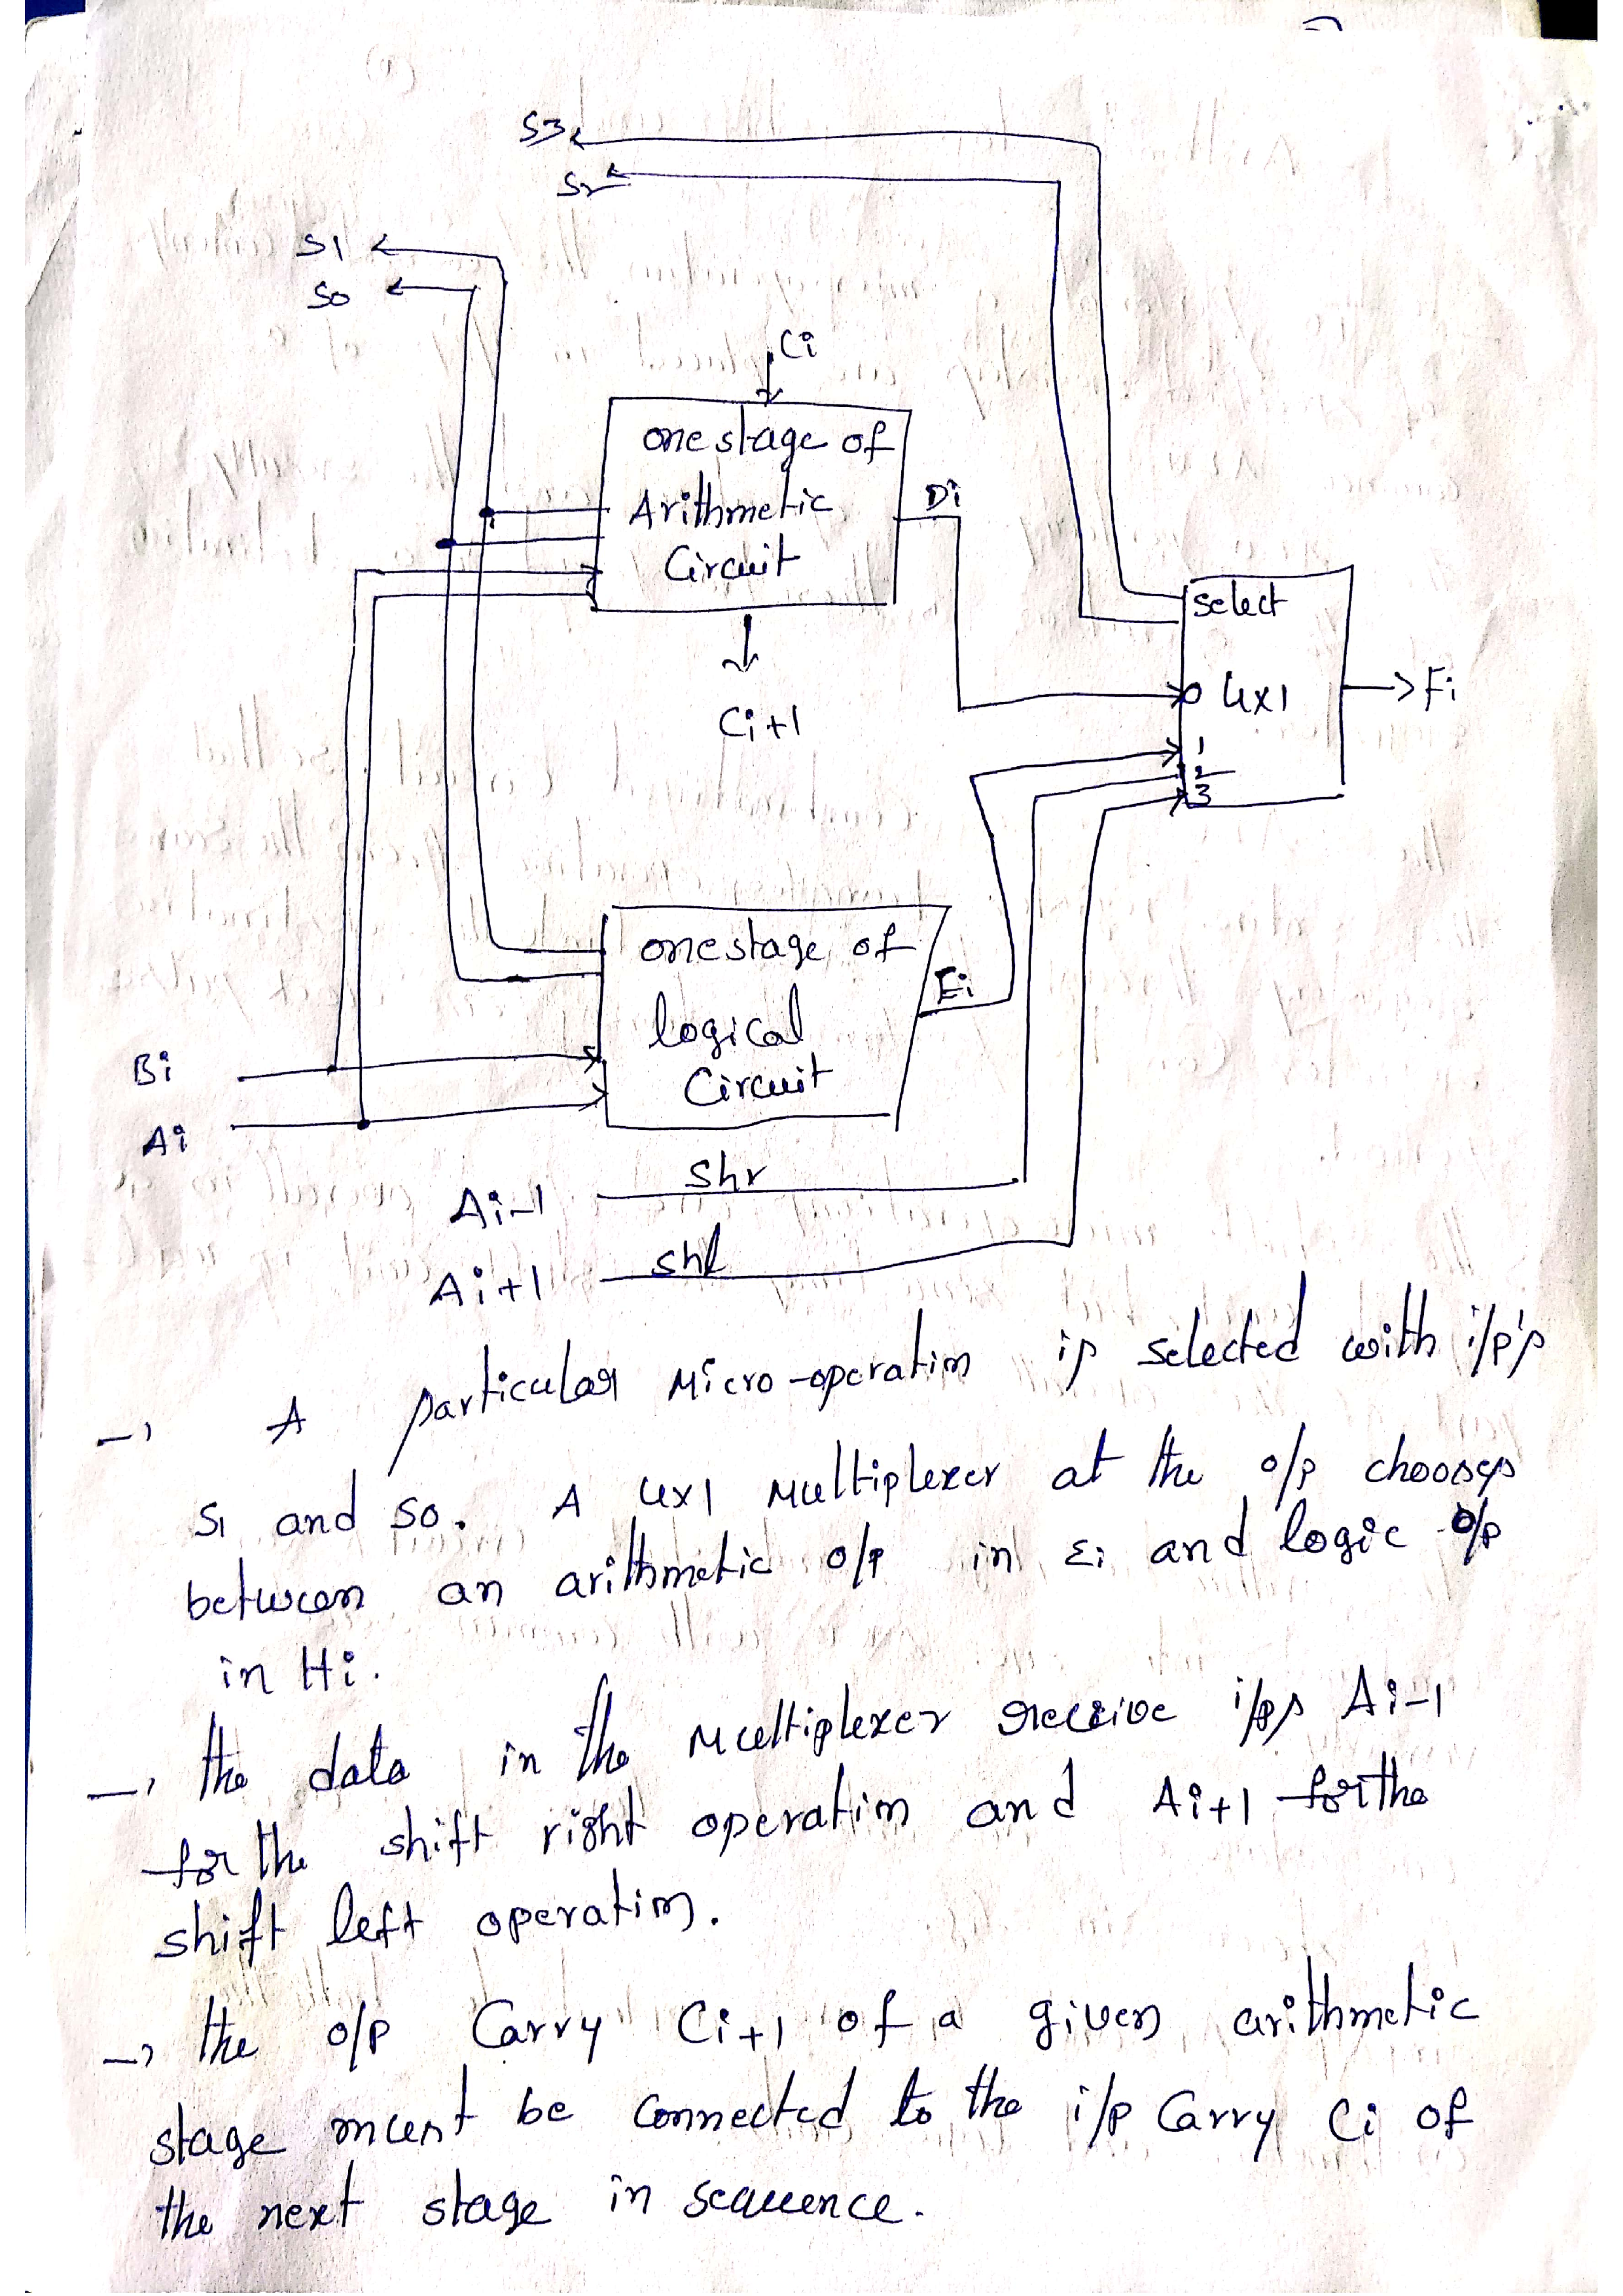 S3
S2
S1
S0
Ci
one stage of
Arithmetic
Circuit
Di
select
0 4x1
Fi
1
2
3
Ci+1
one stage of
logical
Circuit
Ei
Bi
Ai
Shr
Ai-1
shl
Ai+1
→ A particular Micro-operation is selected with i/p's
S1 and S0. A 4x1 Multiplexer at the o/p chooses
between an arithmetic o/p in Ei and logic o/p
in Hi.
→ the data in the Multiplexer receive i/ps Ai-1
for the shift right operation and Ai+1 for the
shift left operation.
→ the o/p Carry Ci+1 of a given arithmetic
stage must be connected to the i/p Carry Ci of
the next stage in sequence.